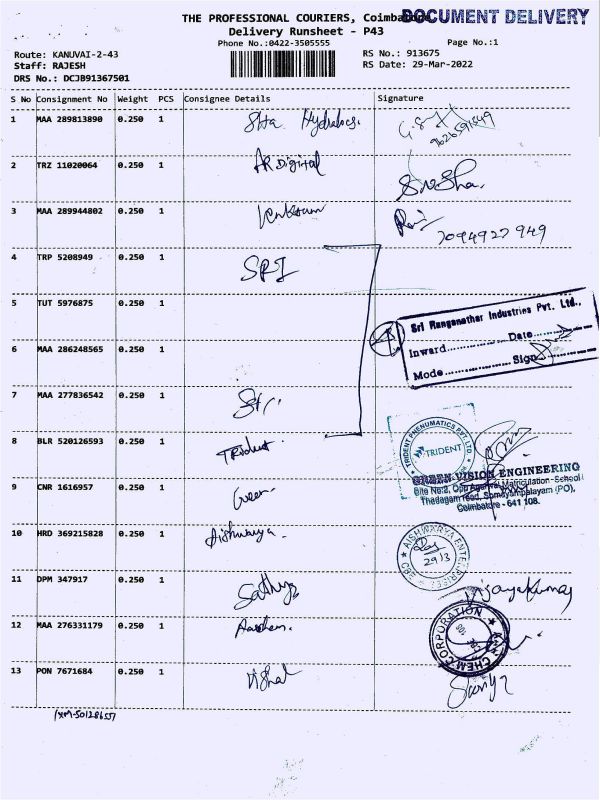 THE PROFESSIONAL COURIERS, Coimbatore
DOCUMENT DELIVERY
Delivery Runsheet - P43
Phone No.:0422-3505555
Page No.:1
Route: KANUVAI-2-43
RS No.: 913675
Staff: RAJESH
RS Date: 29-Mar-2022
DRS No.: DCJB91367501
S No Consignment No Weight PCS Consignee Details Signature
1 MAA 289813890 0.250 1
9626591849
2 TRZ 11020064 0.250 1 AR Digital
Snesha.
3 MAA 289944802 0.250 1
7094927949
4 TRP 5208949 0.250 1 SRI
5 TUT 5976875 0.250 1
Sri Ranganathar Industries Pvt. Ltd.,
Inward Date
Mode Sign
6 MAA 286248565 0.250 1
7 MAA 277836542 0.250 1 Sri
8 BLR 520126593 0.250 1 Trident
TRIDENT PNEUMATICS PVT. LTD.
TRIDENT
GREEN VISION ENGINEERING
Site No:2, Opp Agarwal Matriculation School
Thadagam road, Somayampalayam (PO),
Coimbatore - 641 108.
9 CNR 1616957 0.250 1 Green
10 HRD 369215828 0.250 1 Aishwarya
AISHWARYA ENTERPRISES
CBE
29/3
11 DPM 347917 0.250 1 Sathya
Vijayakumar
12 MAA 276331179 0.250 1
CHEM CORPORATION
13 PON 7671684 0.250 1 Vishal